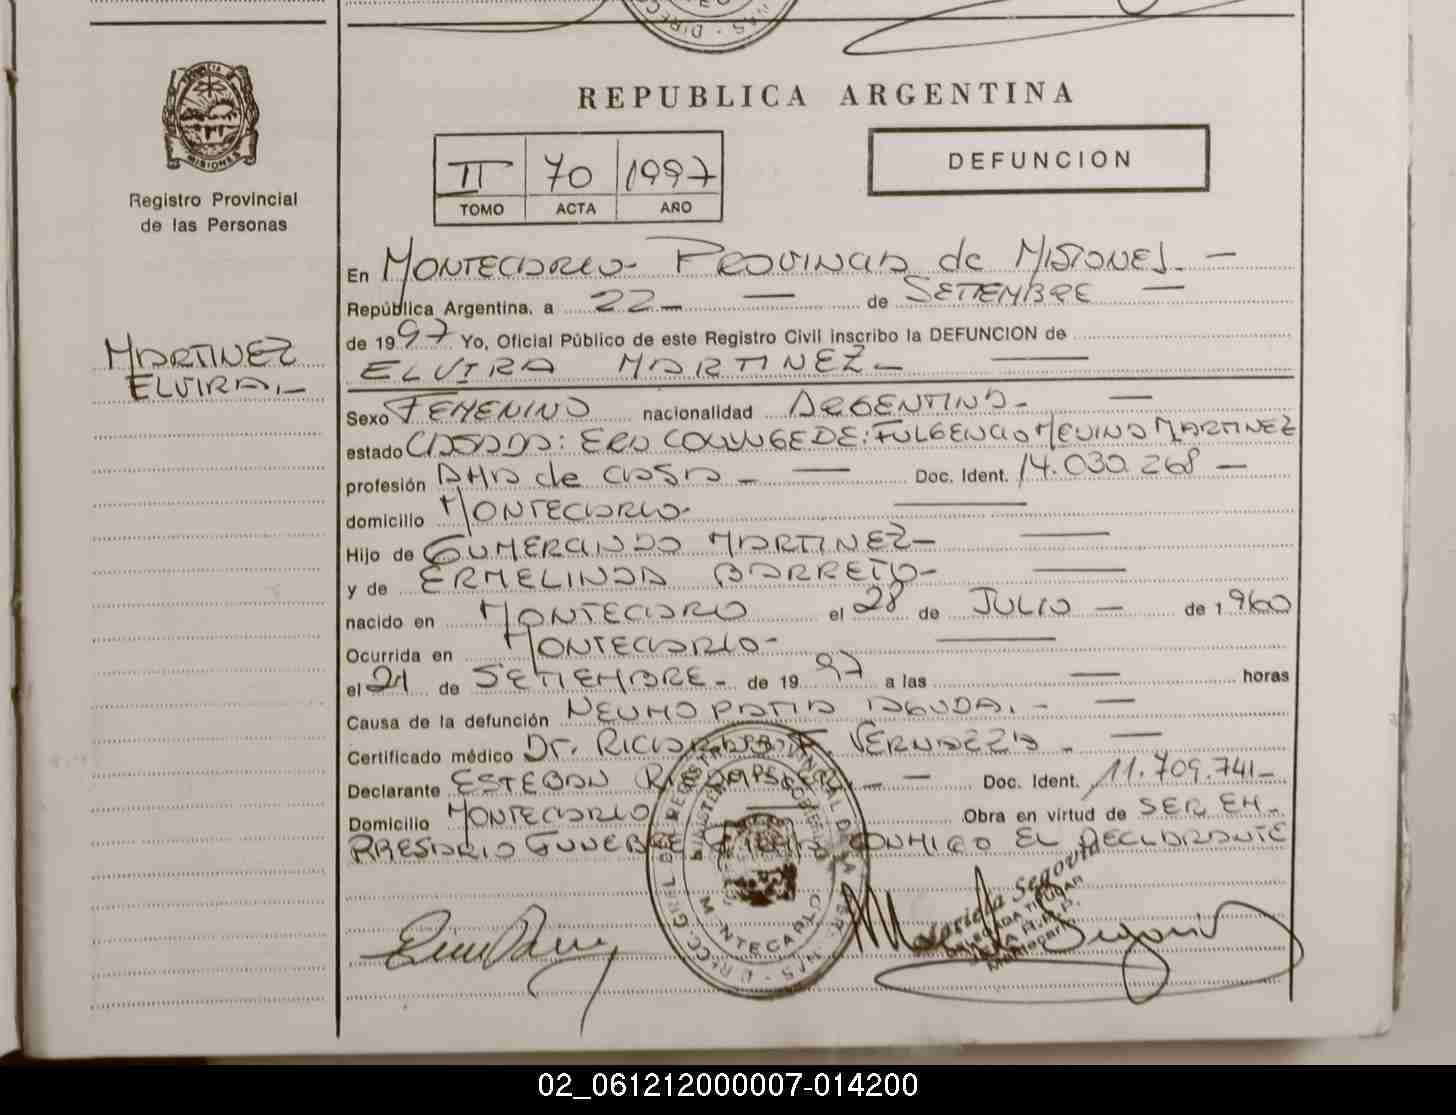 REPUBLICA ARGENTINA
MISIONES
Registro Provincial
de las Personas
II 70 1997
TOMO ACTA AÑO
DEFUNCION
MARTINEZ
ELVIRA.-
En MONTECARLO- PROVINCIA de MISIONES.- —
República Argentina, a 22- — de SETIEMBRE —
de 1997 Yo, Oficial Público de este Registro Civil inscribo la DEFUNCION de
ELVIRA MARTINEZ- —
Sexo FEMENINO nacionalidad ARGENTINA- —
estado CASADA: ERA CONYUGE DE: FULGENCIO MEDINA MARTINEZ
profesión AMA de CASA - — Doc. Ident. 14.030.268 —
domicilio MONTECARLO- —
Hijo de GUMERCINDO MARTINEZ- —
y de ERMELINDA BARRETO- —
nacido en MONTECARLO el 28 de JULIO — de 1960
Ocurrida en MONTECARLO- —
el 21 de SETIEMBRE- de 1997 a las — horas
Causa de la defunción NEUMOPATIA AGUDA.- —
Certificado médico Dr. RICARDO VERNAZZA - —
Declarante ESTEBAN — Doc. Ident. 11.709.741-
Domicilio MONTECARLO Obra en virtud de SER EM-
PRESARIO FUNEBRE CONMIGO EL DECLARANTE
MONTECARLO
Mariela Segovia
DELEGADA TITULAR
02_061212000007-014200